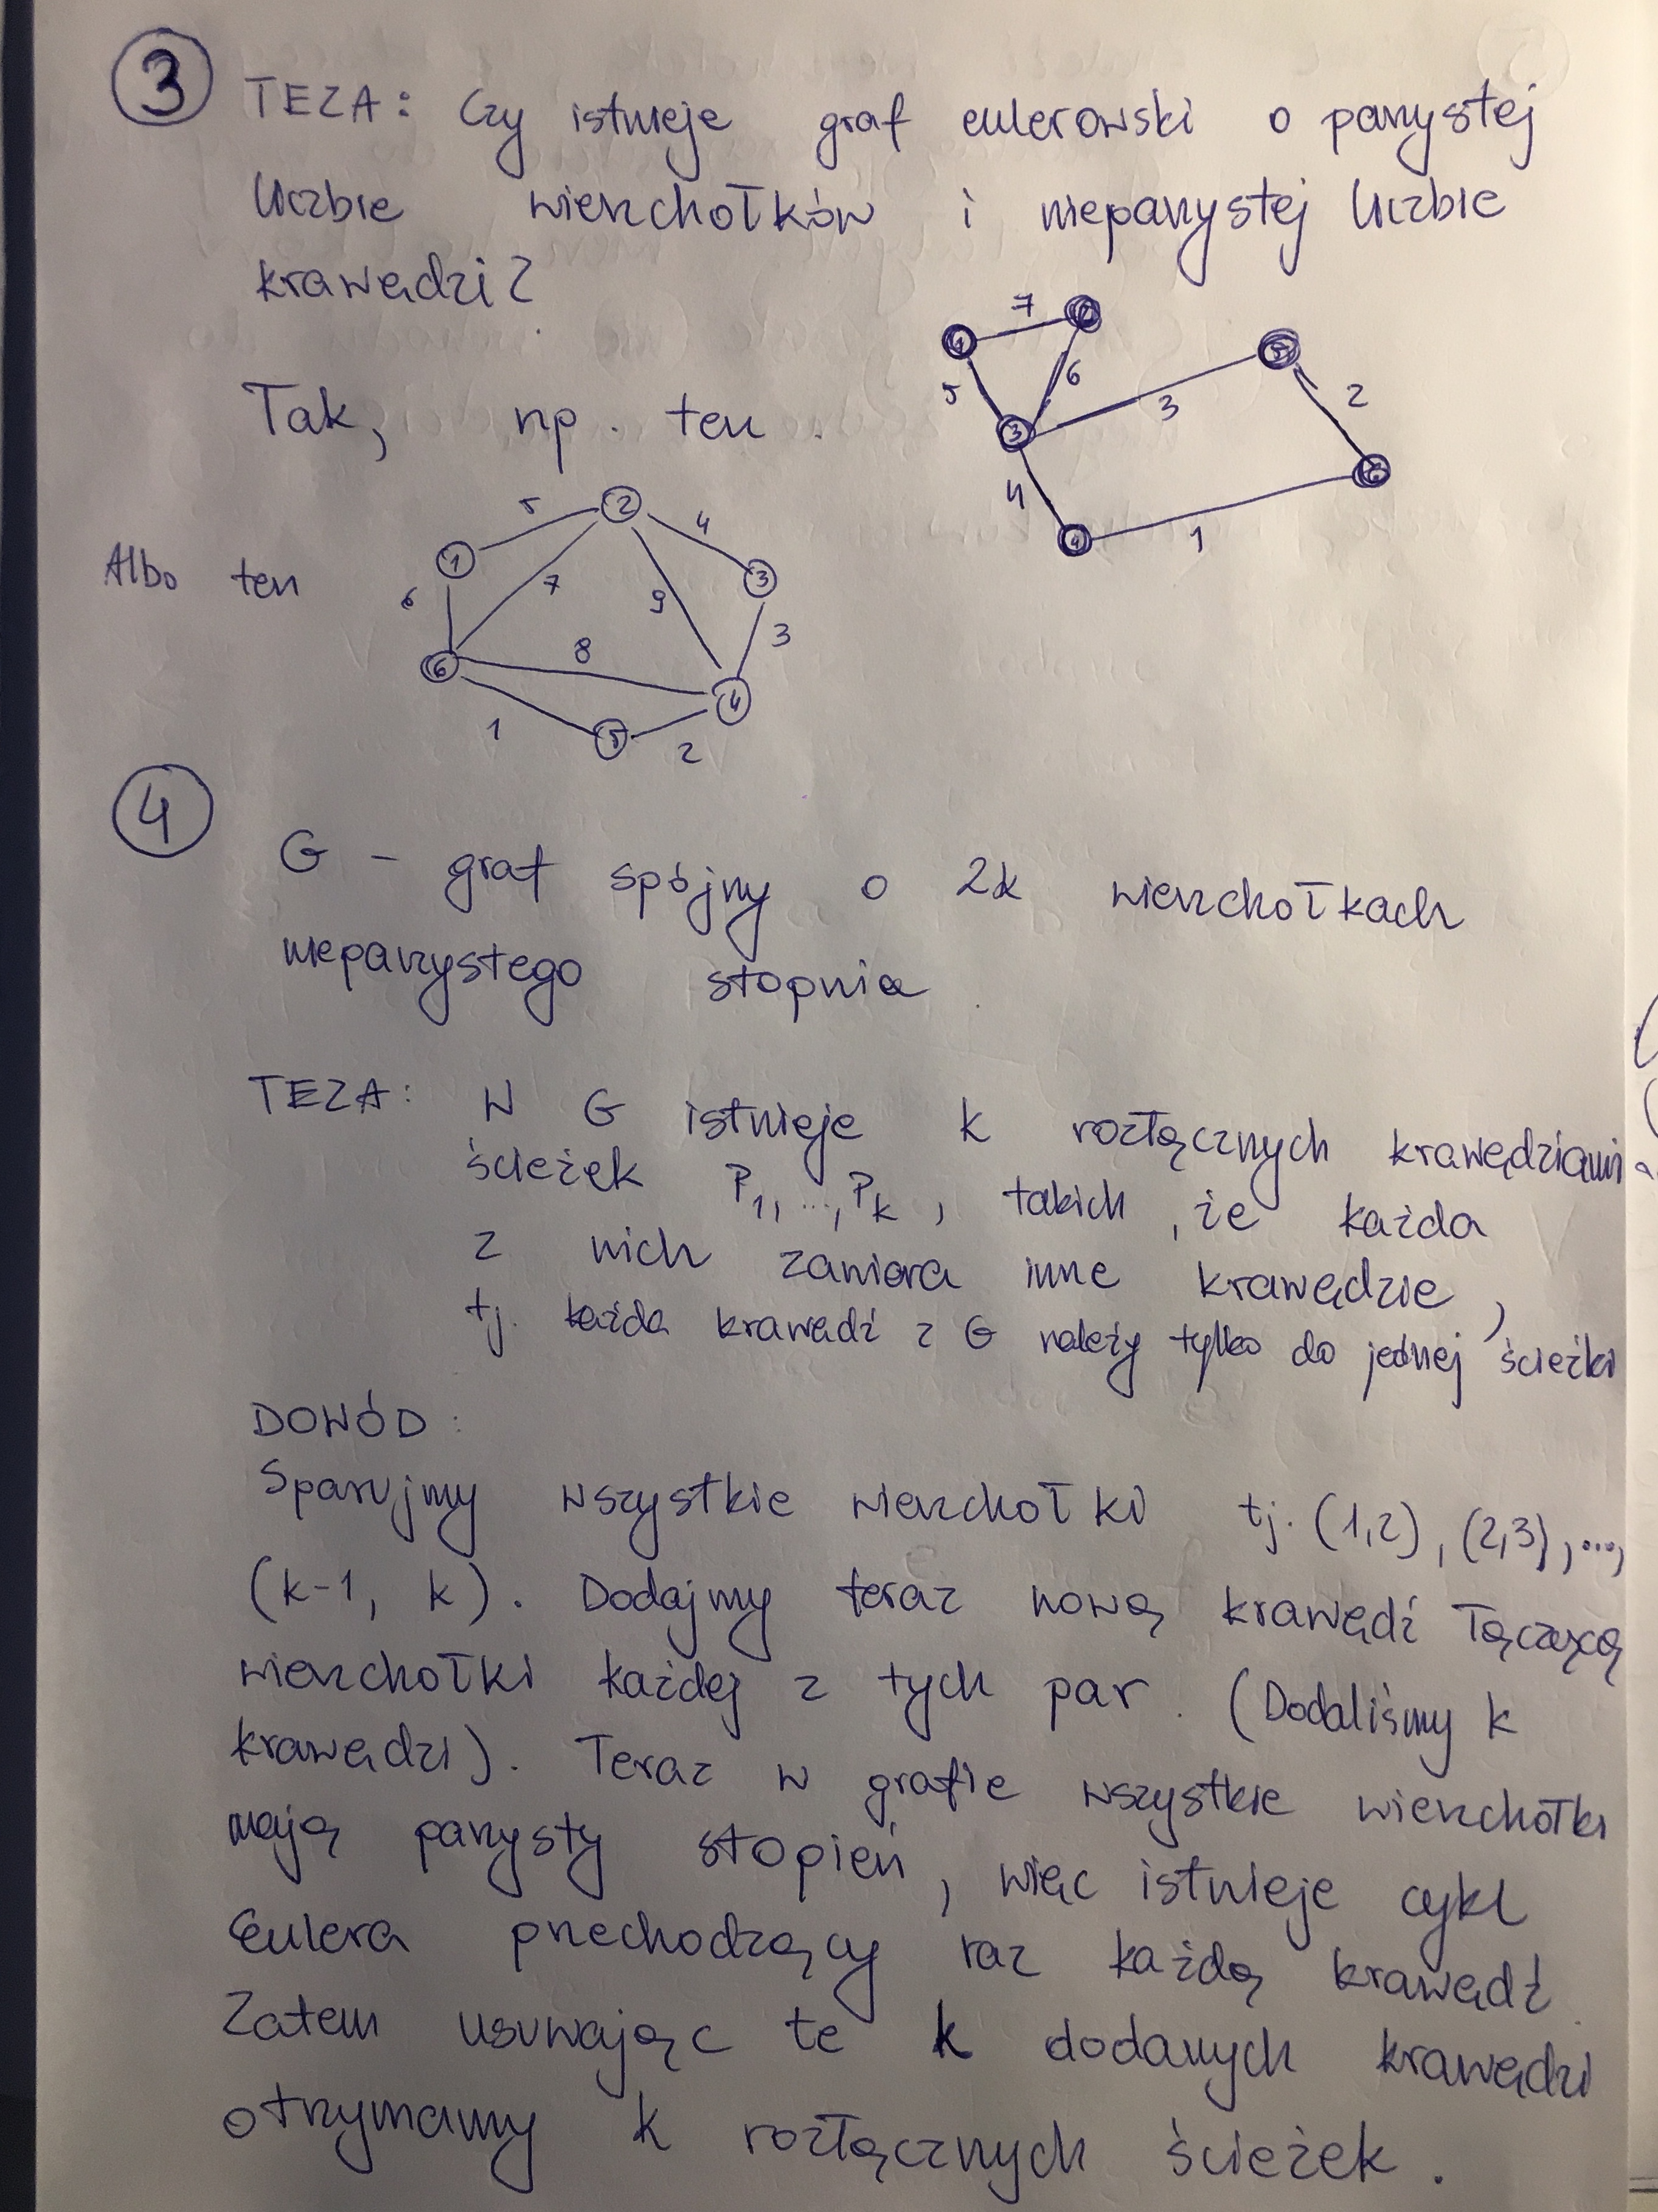 3 TEZA: Czy istnieje graf eulerowski o parzystej
liczbie wierzchołków i nieparzystej liczbie
krawędzi?
Tak, np. ten.
7
1 2
5 6 3 5 2
3
4 6
4 1
Albo ten
5 2 4
1 3
6 7 9 3
8
6 4
1 5 2
4
G - graf spójny o 2k wierzchołkach
nieparzystego stopnia.
TEZA: W G istnieje k rozłącznych krawędziami
ścieżek P1, ..., Pk, takich, że każda
z nich zawiera inne krawędzie,
tj. każda krawędź z G należy tylko do jednej ścieżki
DOWÓD:
Sparujmy wszystkie wierzchołki tj. (1,2), (2,3), ...,
(k-1, k). Dodajmy teraz nową krawędź łączącą
wierzchołki każdej z tych par. (Dodaliśmy k
krawędzi). Teraz w grafie wszystkie wierzchołki
mają parzysty stopień, więc istnieje cykl
Eulera przechodzący raz każdą krawędź.
Zatem usuwając te k dodanych krawędzi
otrzymamy k rozłącznych ścieżek.